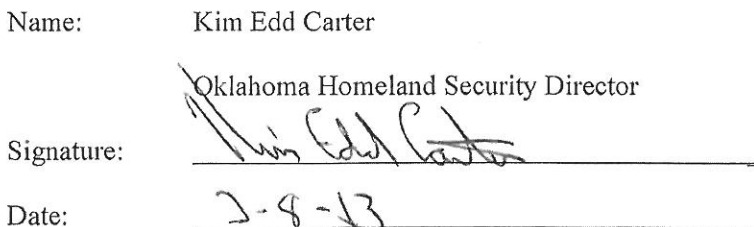 Name: Kim Edd Carter
Oklahoma Homeland Security Director
Signature: Kim Edd Carter
Date: 3-8-13